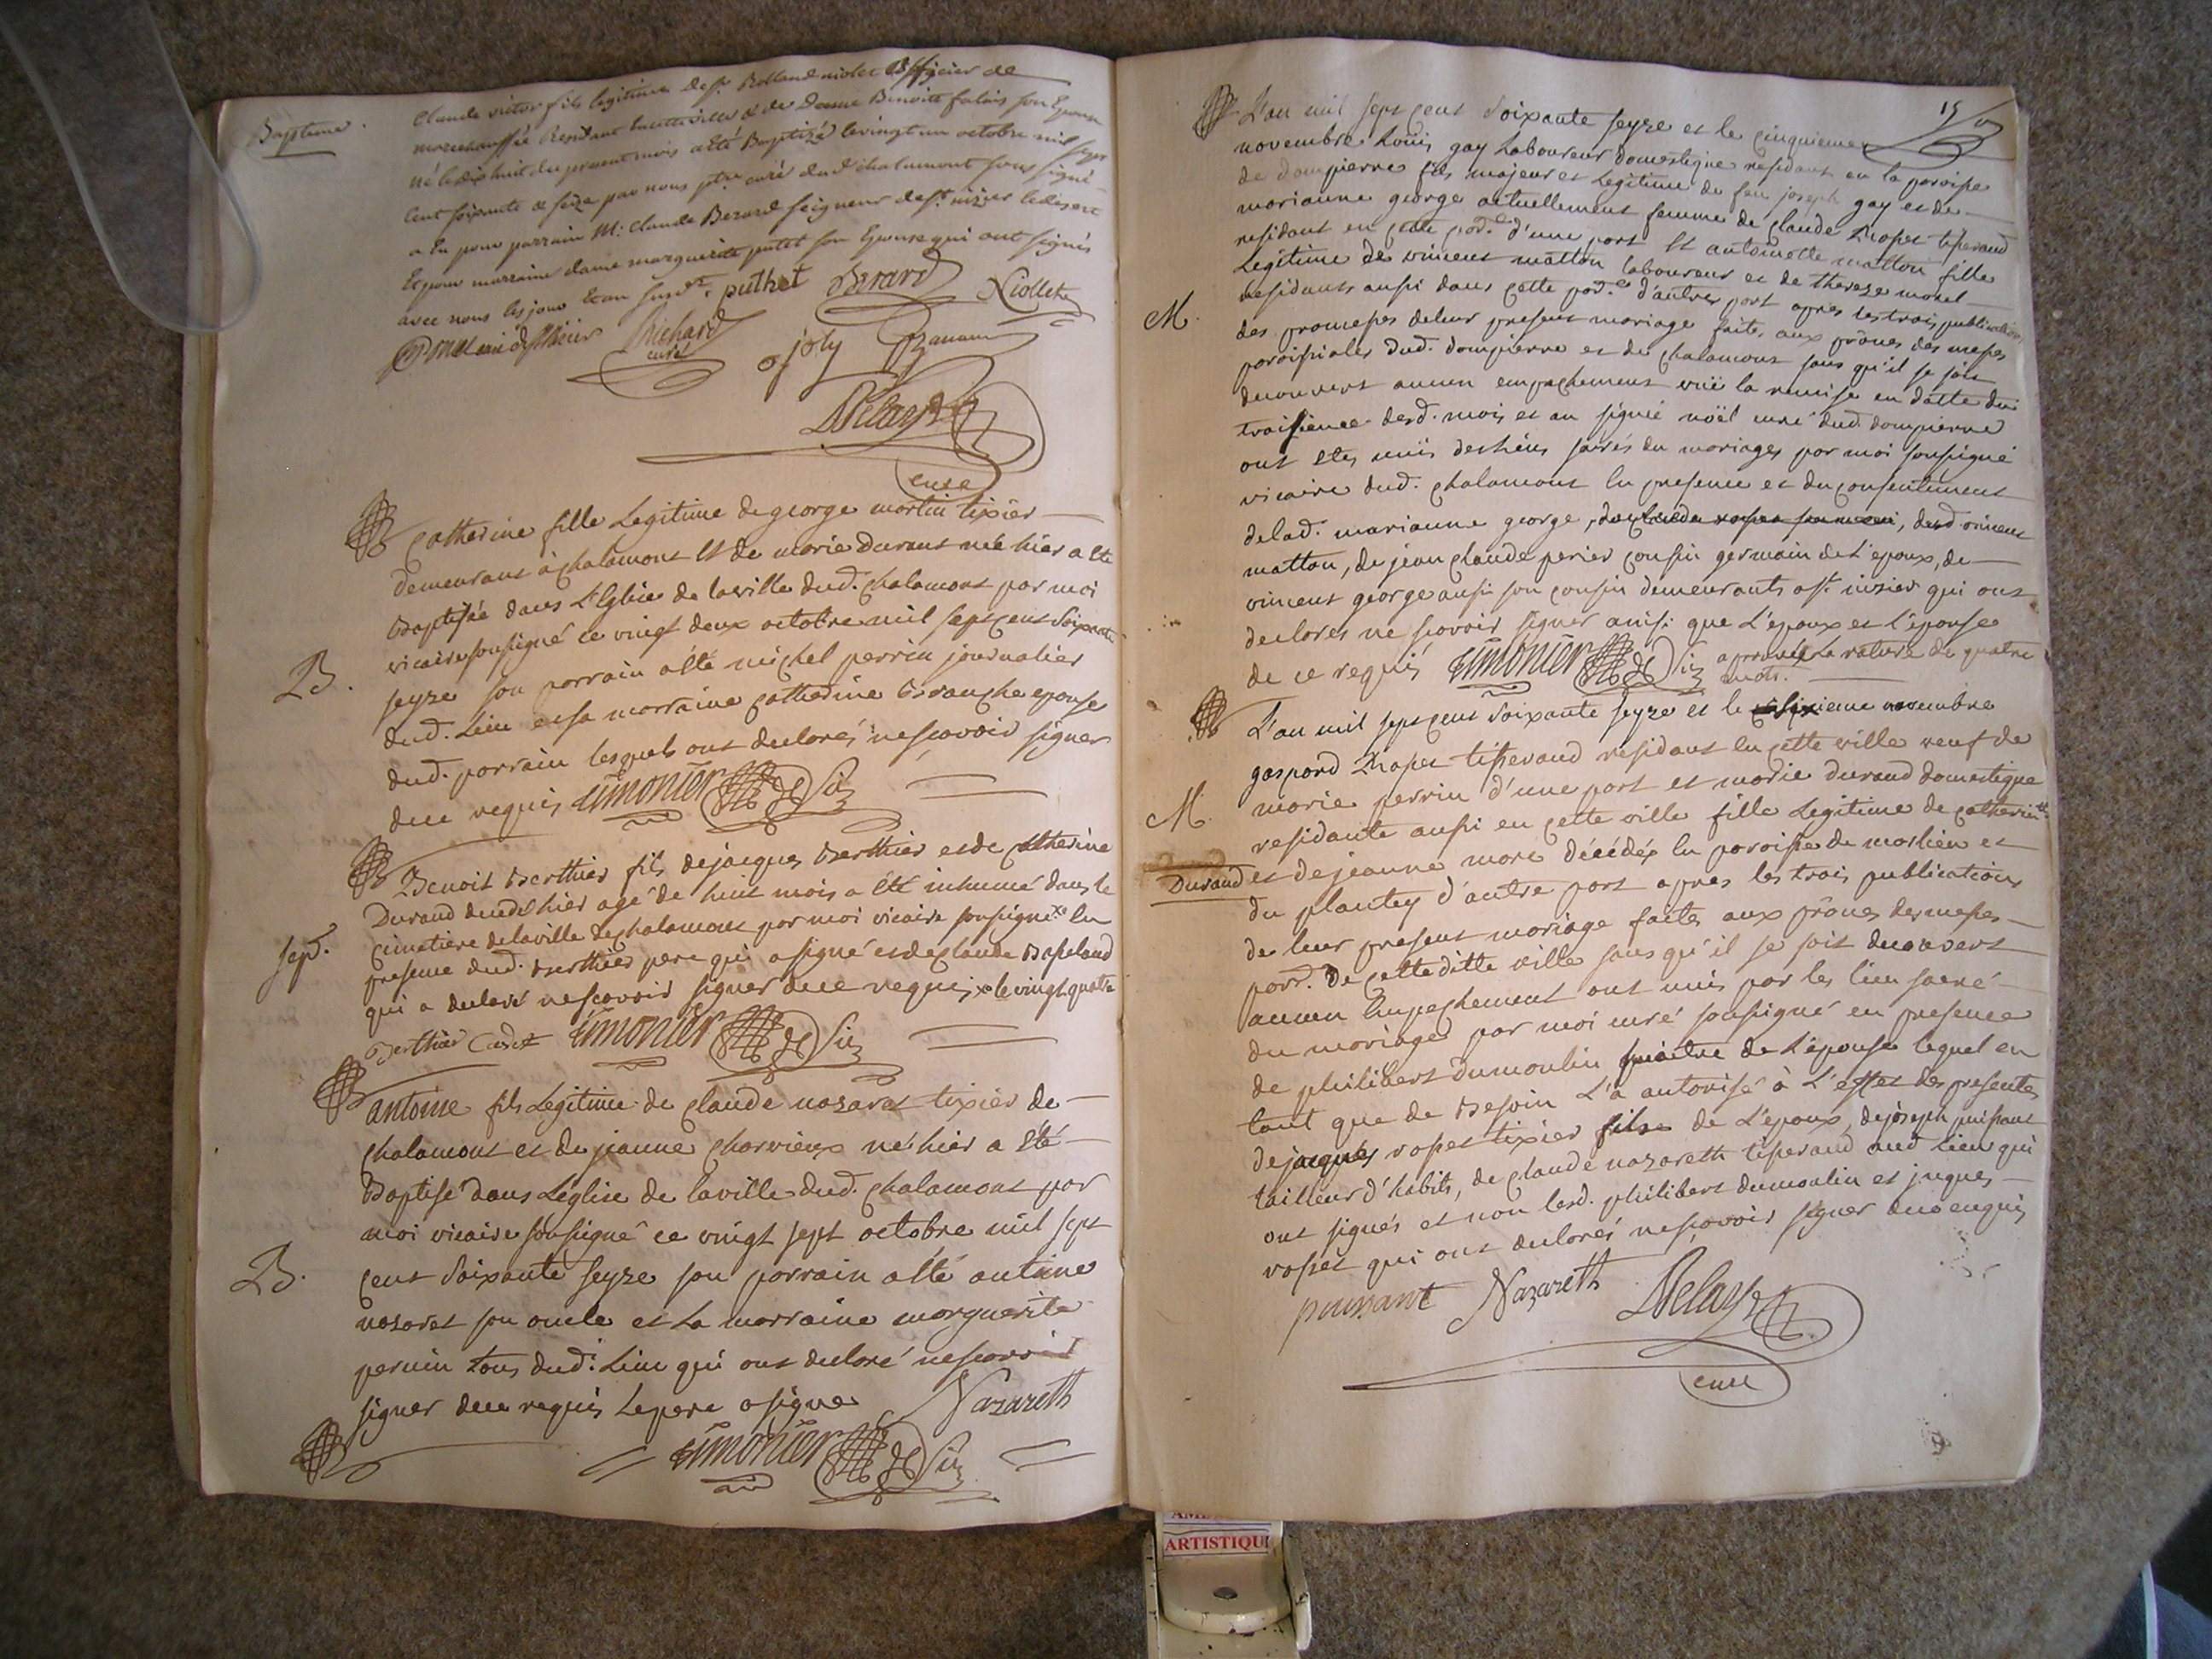 Bapteme.
Claude victor fils legitime de sr. Rolland niolet officier de
marechaussée Residant en cette ville & de Dame Benoite falais son Epouse
né le dix huit du present mois a été Baptizé le vingt un octobre mil sept
cent soixante & seize par nous ptre curé dud chalamont sous signé
a Eu pour parrain Mr. Claude Berard seigneur de st. nizier le desert
Et pour marraine dame marguerite putet son Epouse qui ont signés
avec nous les jour Et an susdts. puthet Berard Niollet
Richard curé joly
Delaye
curé
Catherine fille Legitime de george martin tixier
demeurant à chalamont Et de marie Durant née hier a été
Baptisée dans L'Eglise de la ville dud. chalamont par moi
vicaire soussigné ce vingt deux octobre mil sept cent soixante
B.
seyze son parrain a été michel perrin journalier
dud. Lieu et sa marraine catherine Branche epouse
dud. parrain lesquels ont declarés ne sçavoir signer
de ce requis timonier vic
Benoit Berthier fils de jacques Berthier et de catherine
Durand decedé hier agé de huit mois a été inhumé dans le
sep.
cimetiere de la ville de chalamont par moi vicaire soussigné x en
presence dud. Berthier pere qui a signé et de claude Bapeland
qui a declaré ne sçavoir signer de ce requis x le vingt quatre
Berthier Cadet timonier vic
antoine fils Legitime de claude nazaret tixier de
chalamont et de jeanne charvieux né hier a été
Baptisé dans L'eglise de la ville dud. chalamont par
moi vicaire soussigné ce vingt sept octobre mil sept
B.
cent soixante seyze son parrain a été antoine
nazaret son oncle et La marraine marguerite
perrin tous dud. Lieu qui ont declaré ne sçavoir
signer de ce requis Le pere a signé Nazareth
timonier vic
15
L'an mil sept cent soixante seyze et le cinquieme
novembre Loüis gay Laboureur domestique residant en la paroisse
de dompierre fils majeur et Legitime de feu joseph gay et de
marianne george actuellement femme de claude Rosset tisserand
residant en cette pad.e d'une part Et antoinette matton fille
Legitime de vincent matton laboureur et de therese morel
residants aussi dans cette pad.e d'autre part apres les trois publications
M.
des promesses de leur present mariage faites aux prônes des messes
paroissiales dud. dompierre et de chalamont sans qu'il se soit
decouvert aucun empechement vuë la remise en datte du
troisieme desd. mois et an signé noël curé dud. dompierre
ont etes unis des liens sacrés du mariage par moi soussigné
vicaire dud. chalamont En presence et du consentement
de lad. marianne george, de claude rosset son mari, dud vincent
matton, de jean claude perier cousin germain de L'epoux, de
vincent george aussi son cousin demeurants a st. nizier qui ont
declarés ne sçavoir signer ainsi que L'epoux et L'epouse
de ce requis timonier vic approuvé La rature de quatre
mots.
L'an mil sept cent soixante seyze et le sixieme novembre
gaspard Rosset tisserand residant en cette ville veuf de
marie perrin d'une part et marie durand domestique
M.
residante aussi en cette ville fille Legitime de catherin
Durand et de jeanne more décédés en paroisse de marlieu et
du plantey d'autre part apres les trois publications
de leur present mariage faites aux prônes des messes
pard. de cette ditte ville sans qu'il se soit decouvert
aucun Empechement ont unis par les lien sacré
du mariage par moi curé soussigné en presence
de philibert dumoulin maitre de L'epouse lequel en
tant que de Besoin L'a autorisé à L'effet des presentes
de jacques rosset tixier fils de L'epoux, de joseph puissant
tailleur d'habits, de claude nazareth tisserand aud Lieu qui
ont signés et non lesd. philibert dumoulin et jacques
rosset qui ont declarés ne sçavoir signer de ce enquis
puissant Nazareth Delaye
curé
ARTISTIQU